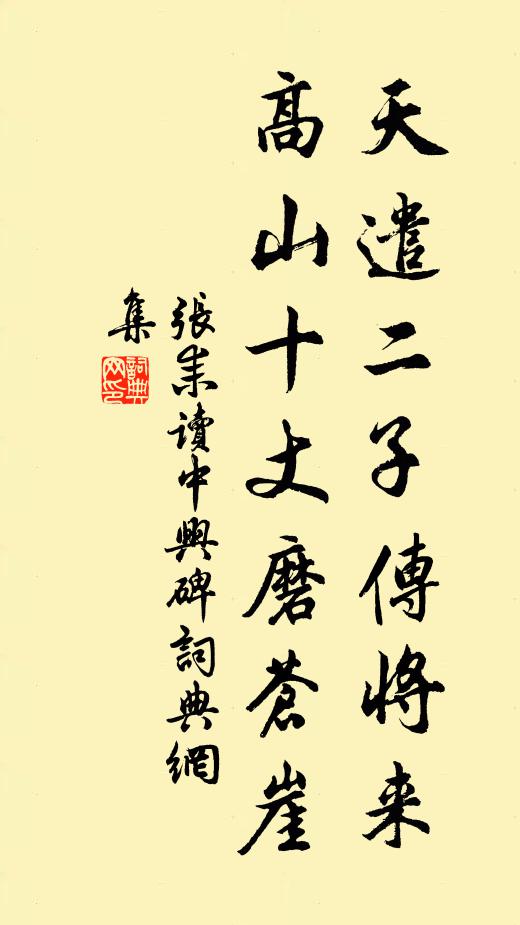 天遣二子傳將来
高山十丈磨蒼崖
張耒讀中興碑詞典網
集
詞典
网印